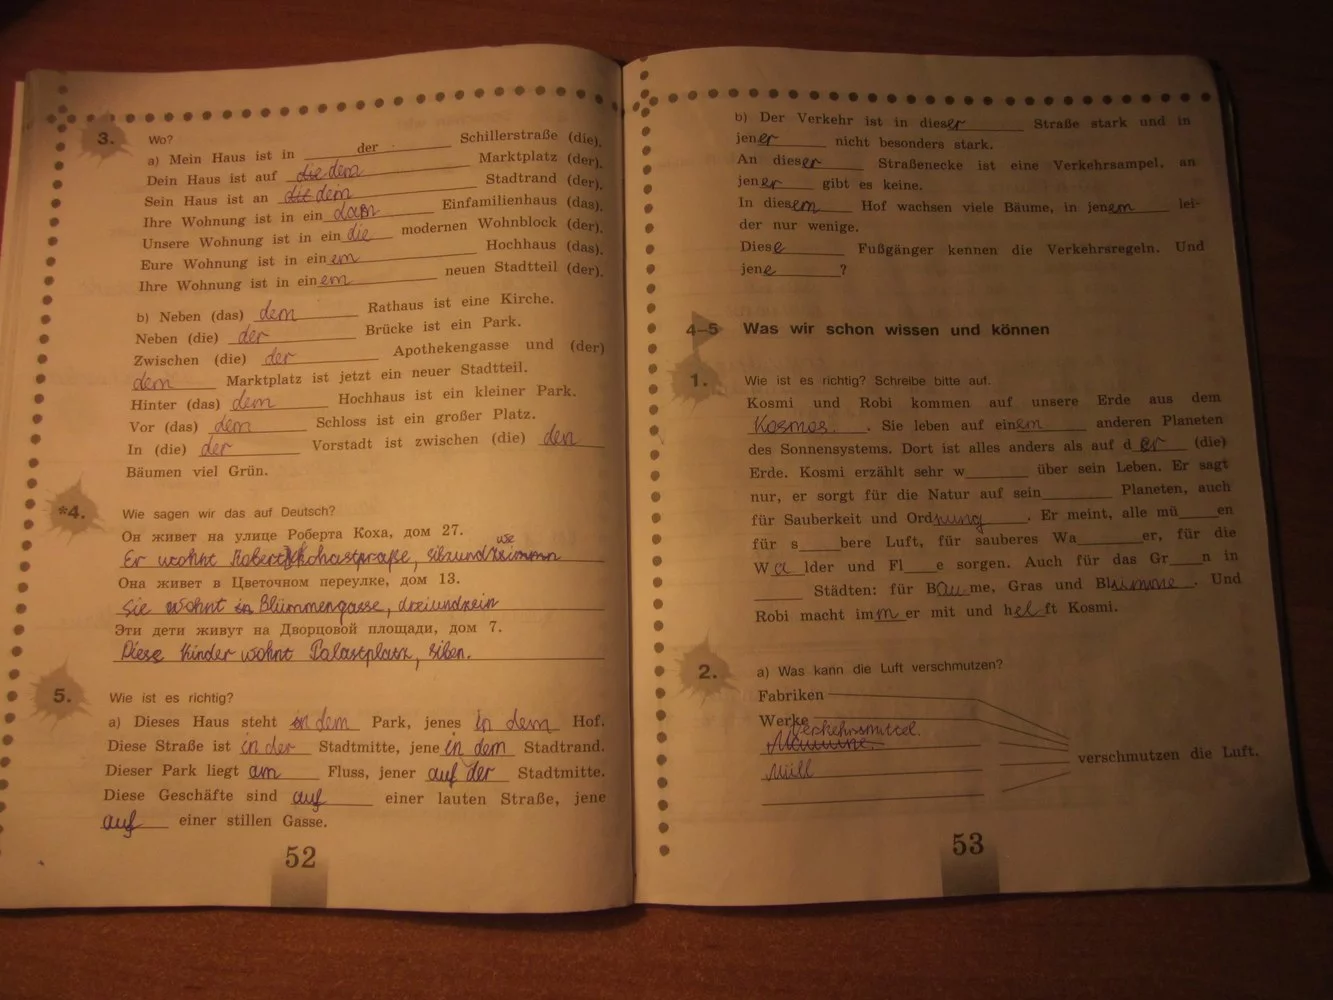 3. Wo?
a) Mein Haus ist in der Schillerstraße (die).
Dein Haus ist auf die dem Marktplatz (der).
Sein Haus ist an die dem Stadtrand (der).
Ihre Wohnung ist in ein Einfamilienhaus (das).
Unsere Wohnung ist in ein die modernen Wohnblock (der).
Eure Wohnung ist in einem Hochhaus (das).
Ihre Wohnung ist in einem neuen Stadtteil (der).
b) Neben (das) dem Rathaus ist eine Kirche.
Neben (die) der Brücke ist ein Park.
Zwischen (die) der Apothekengasse und (der)
dem Marktplatz ist jetzt ein neuer Stadtteil.
Hinter (das) dem Hochhaus ist ein kleiner Park.
Vor (das) dem Schloss ist ein großer Platz.
In (die) der Vorstadt ist zwischen (die) den
Bäumen viel Grün.
*4. Wie sagen wir das auf Deutsch?
Он живет на улице Роберта Коха, дом 27.
Er wohnt
Она живет в Цветочном переулке, дом 13.
Sie wohnt in Blümmengasse, dreiundzein
Эти дети живут на Дворцовой площади, дом 7.
Diese Kinder wohnt Palastplatz, siben.
5. Wie ist es richtig?
a) Dieses Haus steht in dem Park, jenes in dem Hof.
Diese Straße ist in der Stadtmitte, jene in dem Stadtrand.
Dieser Park liegt am Fluss, jener auf der Stadtmitte.
Diese Geschäfte sind auf einer lauten Straße, jene
auf einer stillen Gasse.
52
b) Der Verkehr ist in dieser Straße stark und in
jener nicht besonders stark.
An dieser Straßenecke ist eine Verkehrsampel, an
jener gibt es keine.
In diesem Hof wachsen viele Bäume, in jenem lei-
der nur wenige.
Diese Fußgänger kennen die Verkehrsregeln. Und
jene ?
4–5 Was wir schon wissen und können
1. Wie ist es richtig? Schreibe bitte auf.
Kosmi und Robi kommen auf unsere Erde aus dem
Kosmos. . Sie leben auf einem anderen Planeten
des Sonnensystems. Dort ist alles anders als auf der (die)
Erde. Kosmi erzählt sehr w______ über sein Leben. Er sagt
nur, er sorgt für die Natur auf sein______ Planeten, auch
für Sauberkeit und Ordnung . Er meint, alle mü____en
für s____bere Luft, für sauberes Wa______er, für die
Wälder und Fl____e sorgen. Auch für das Gr____n in
____ Städten: für Bäume, Gras und Blumme. Und
Robi macht immer mit und helft Kosmi.
2. a) Was kann die Luft verschmutzen?
Fabriken
Werke
Verkehrsmittel.
Müll
verschmutzen die Luft.
53